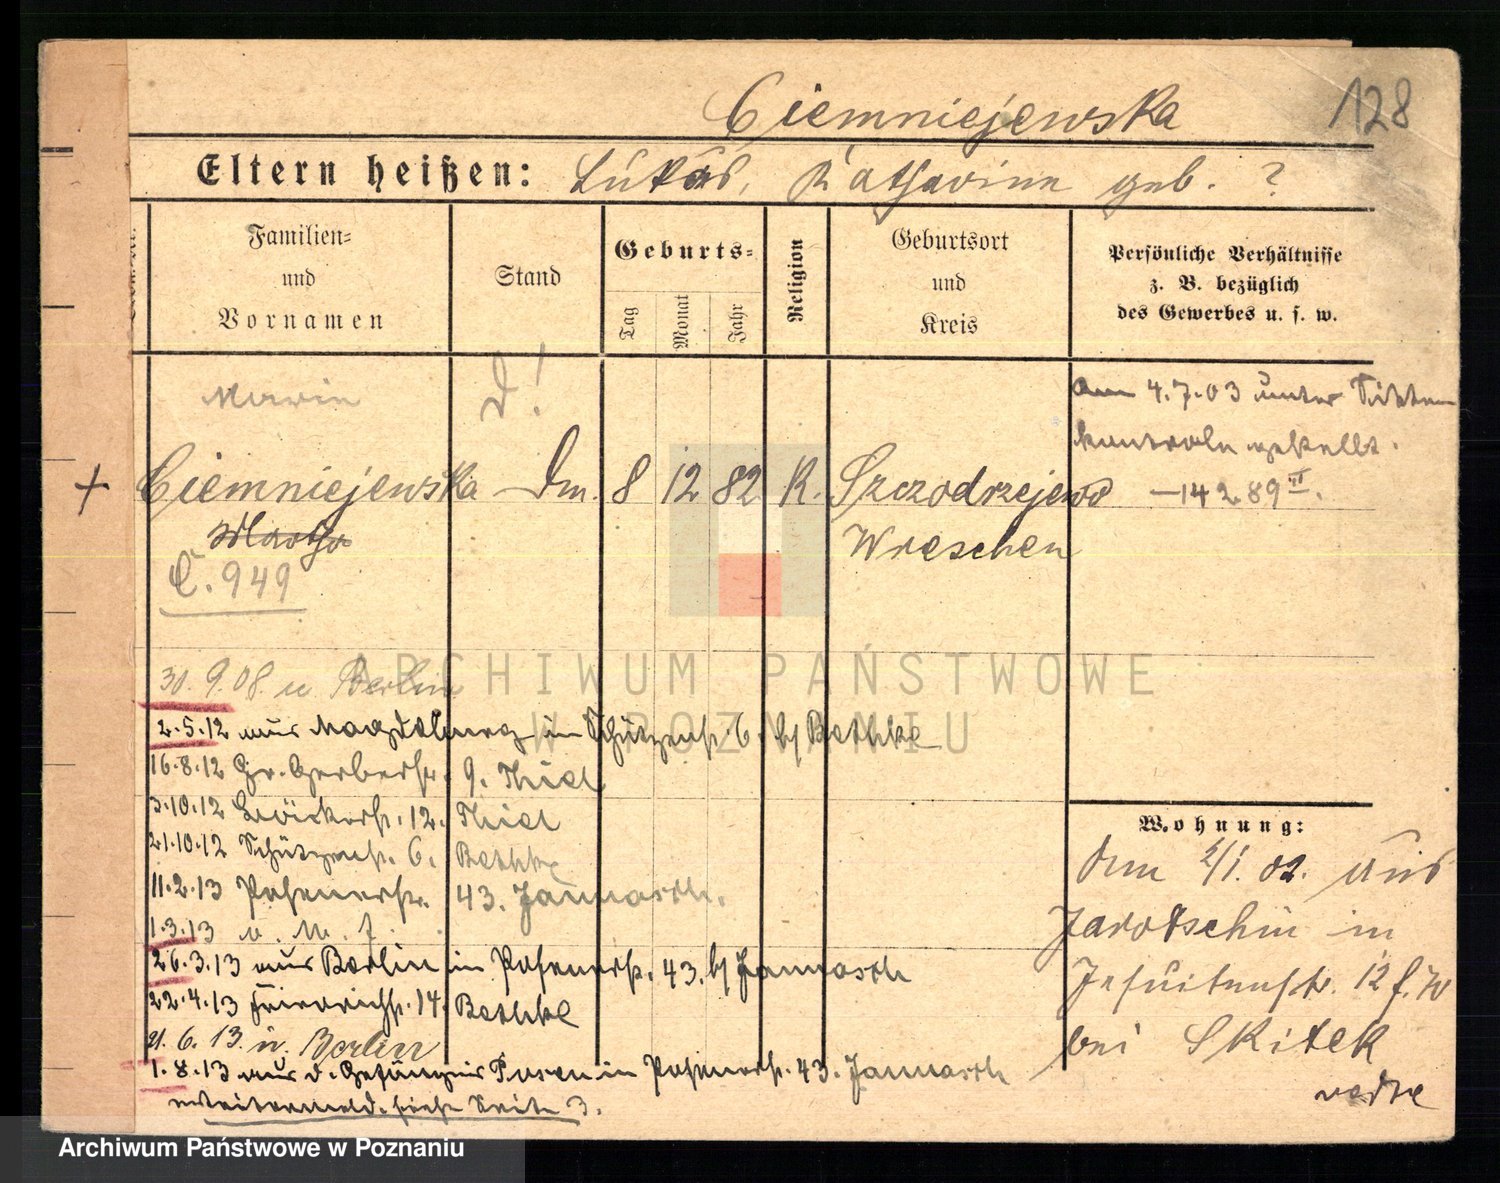 Ciemniejewska
128
Eltern heißen: Lukas, Katharina geb. ?
Familien-
und
Vornamen
Stand
Geburts-
Tag
Monat
Jahr
Religion
Geburtsort
und
Kreis
Persönliche Verhältnisse
z. B. bezüglich
des Gewerbes u. s. w.
Marie
D!
am 4.7.03 unter Sitten
kontrolle gestellt.
+ Ciemniejewska Dm. 8 12 82 K. Szczodrzejewo
—14289 III.
Martha
Wreschen
C. 949
30.9.08. n Berlin
2.5.12 aus Magdeburg in Schützenstr. 6. b/ Bethke
16.8.12 Gr. Gerberstr. 9. Thiel
3.10.12 12. Thiel
21.10.12 Schützenstr. 6. Bethke
11.2.13 Posenerstr. 43. Jannasch.
1.3.13 v. M. f.
26.3.13 aus Berlin in Posenerstr. 43. b/ Jannasch
22.4.13 Friedrichstr. 14. Bethke
21.6.13. n. Berlin
1.8.13 aus d. Gefängnis Posen in Posenerstr. 43. Jannasch
weitermeld. siehe Seite 3.
Wohnung:
Den 2/1. 02. aus
Jarotschin in
Jesuitenstr. 12
bei Skitek
ARCHIWUM PAŃSTWOWE
W POZNANIU
Archiwum Państwowe w Poznaniu